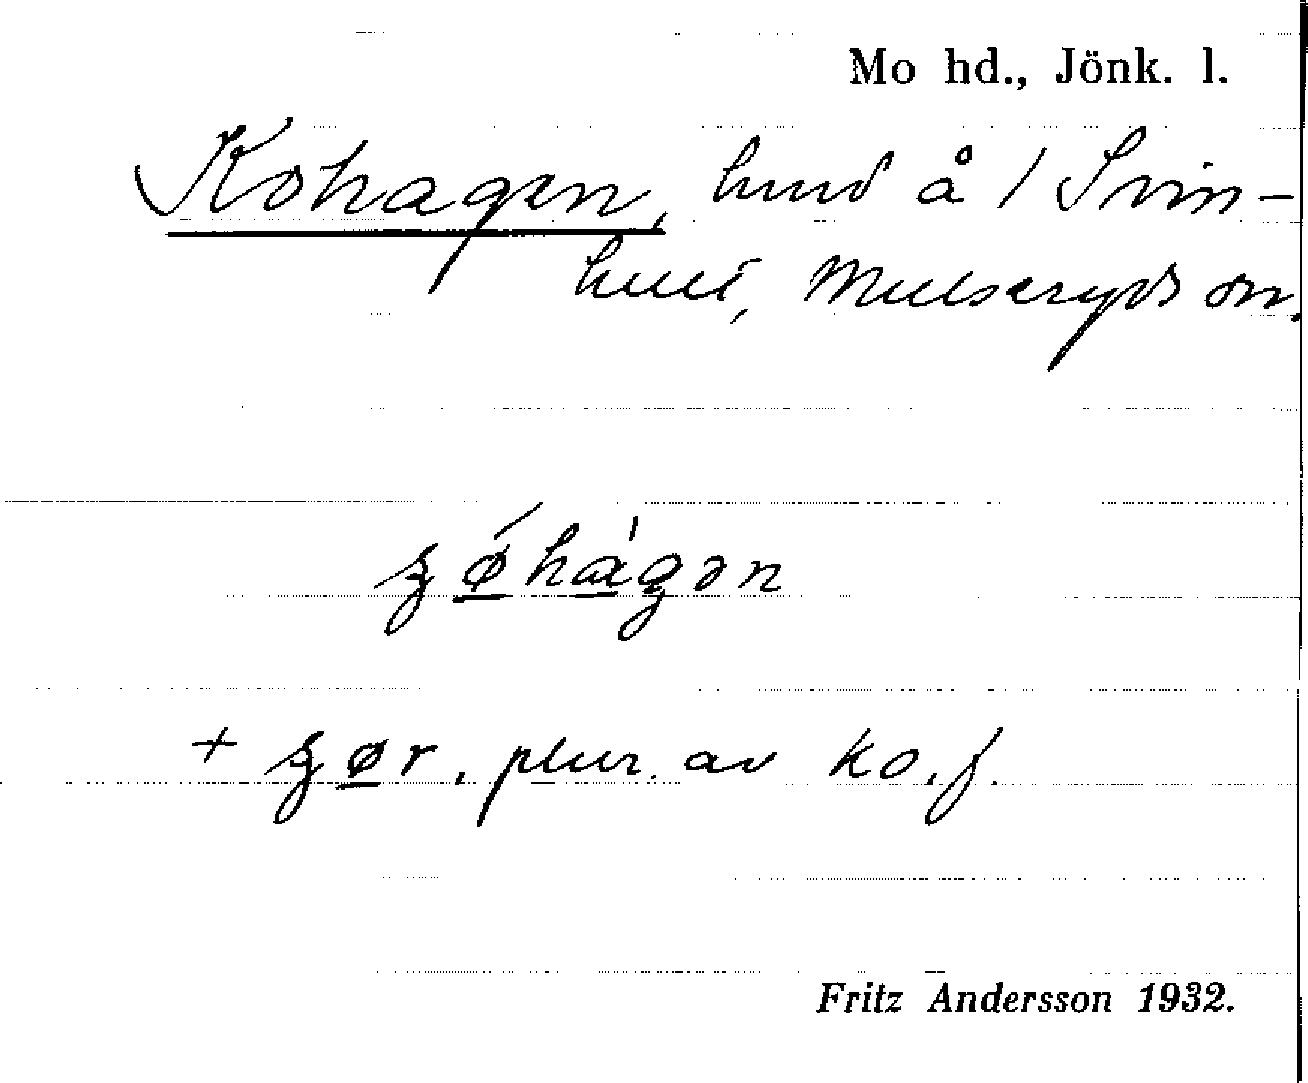 Mo hd., Jönk. l.
Kohagen, hmd å 1 Svin-
hult, Mulseryds sn.
ʒǿhágən
+ ʒør, plur. av ko, f.
Fritz Andersson 1932.